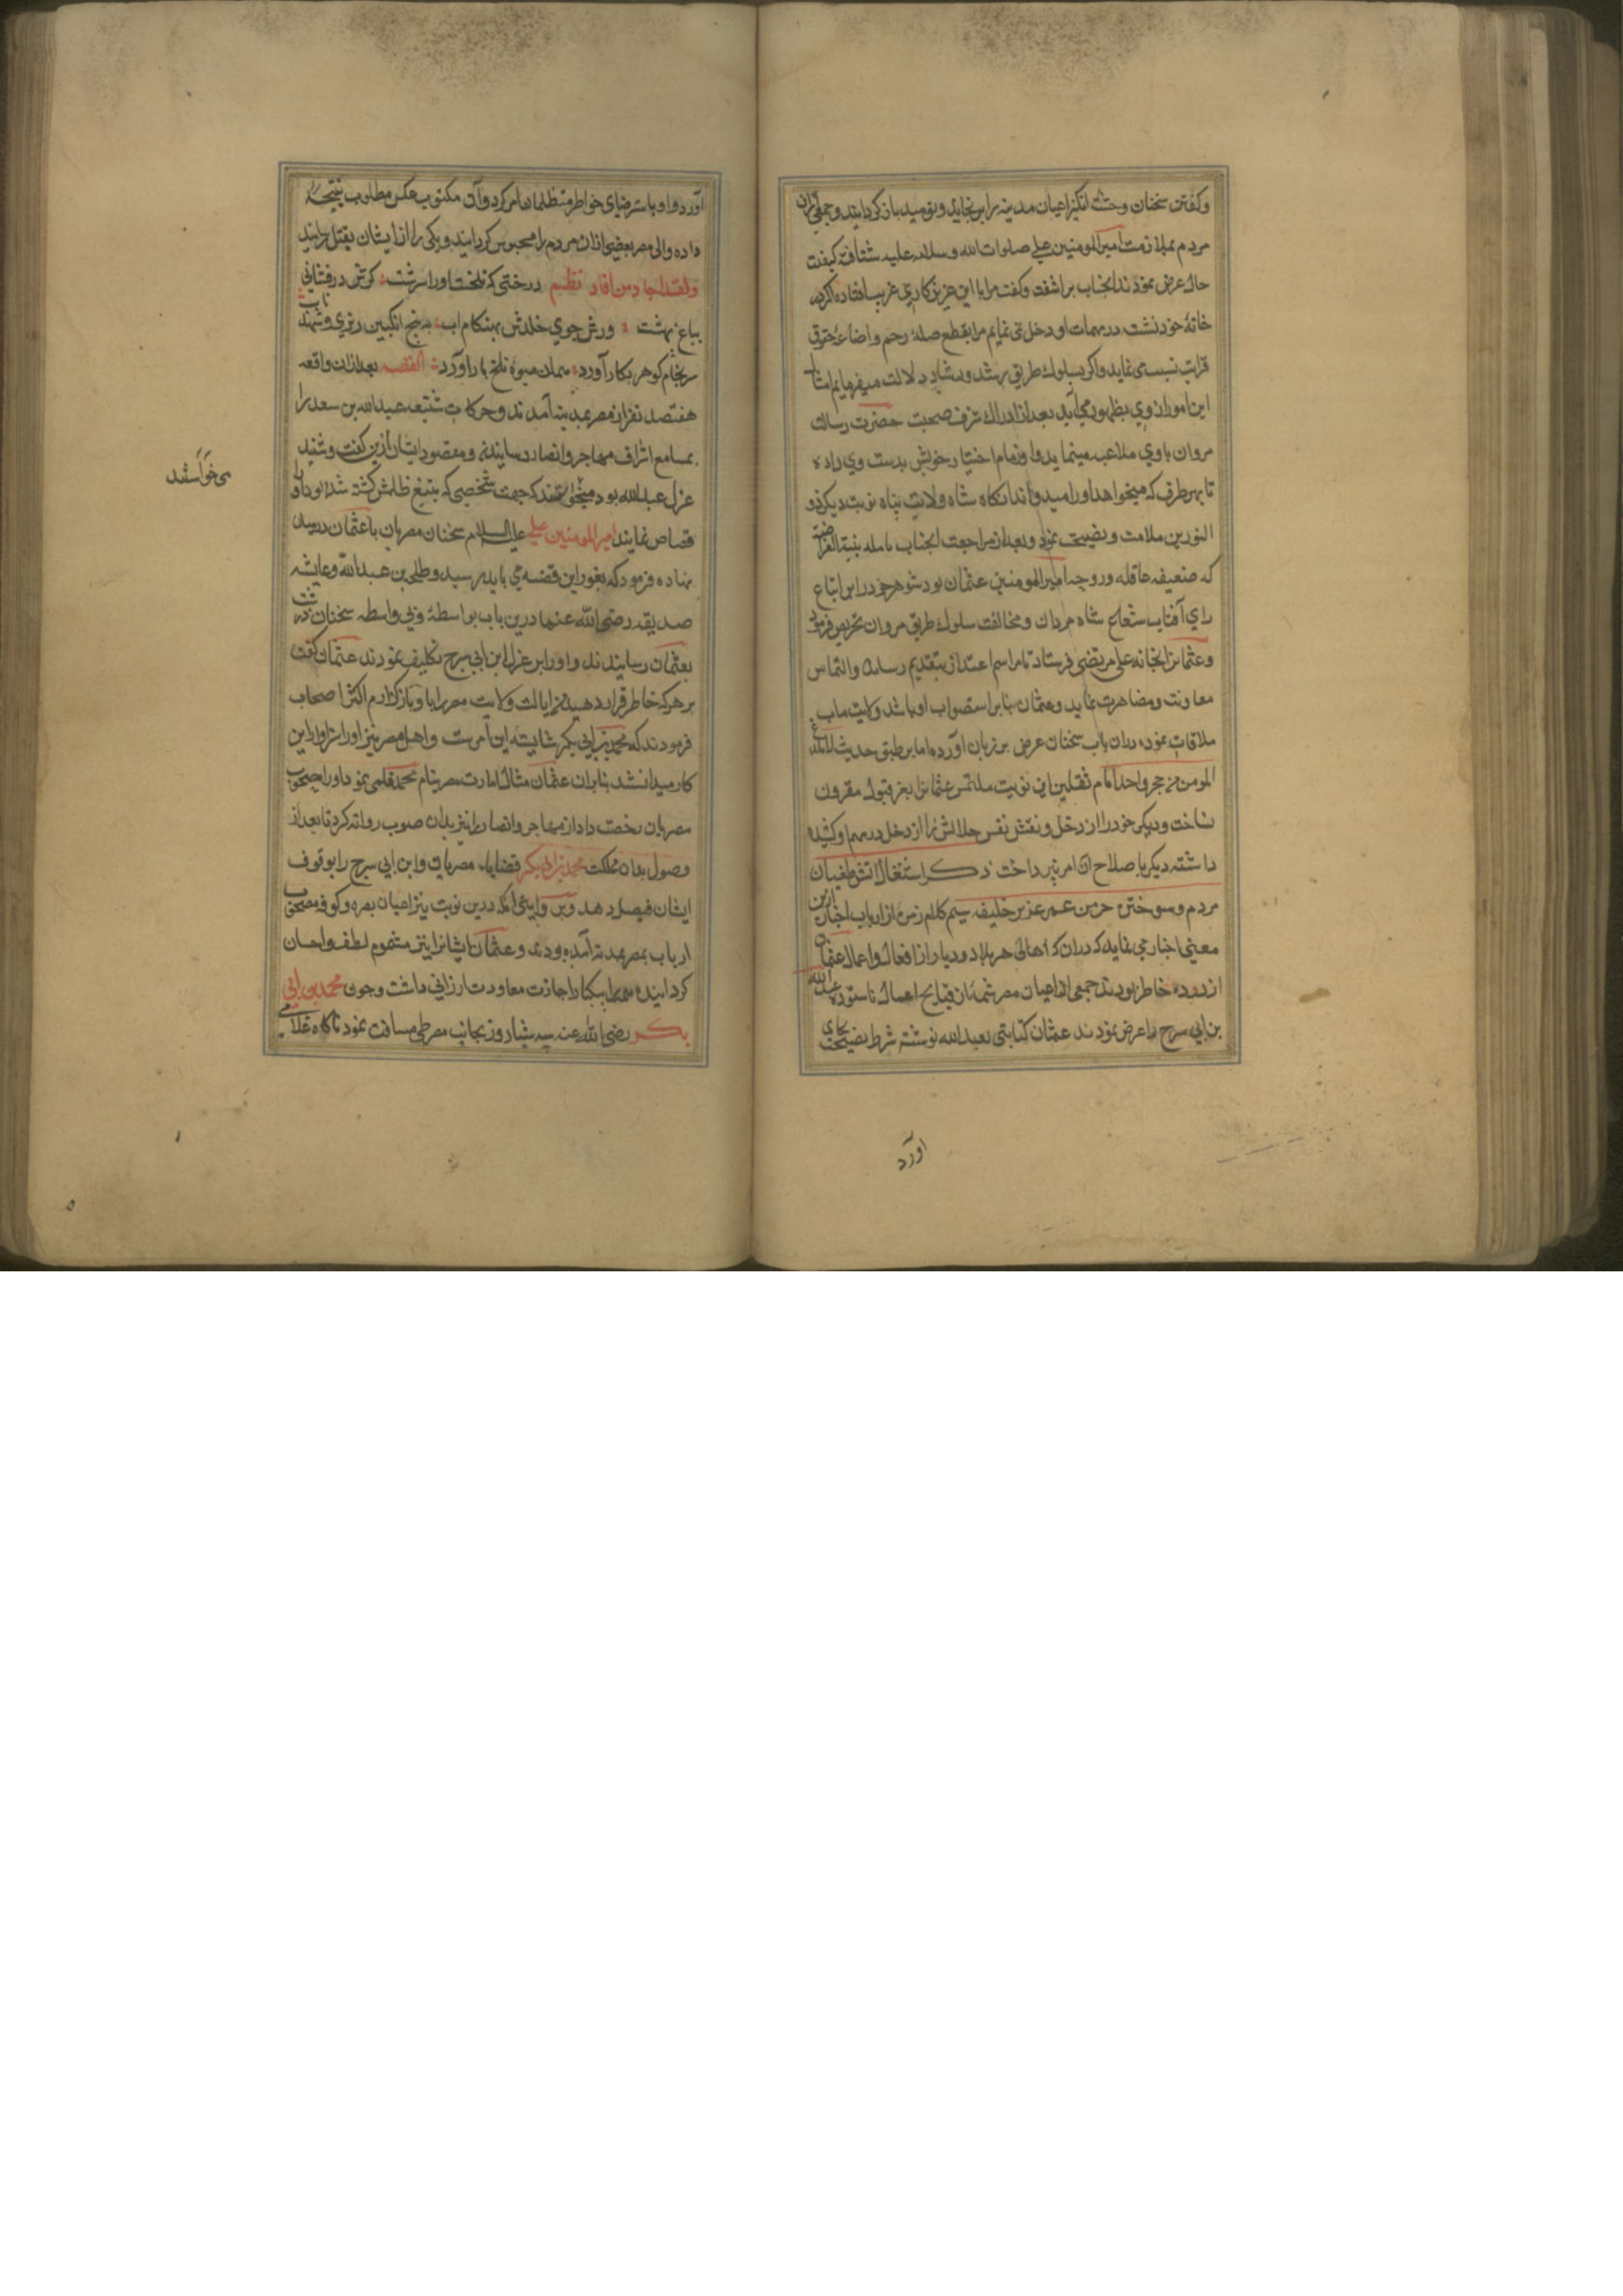 وکفتن سخنان وحشت انکیز اعیان مدینه را برنجانید و نومید باز کردانید و جمعی ازان
مردم بملازمت امیرالمومنین علی صلوات الله و سلامه علیه شتافته کیفیت
حال عرض نمودند انجناب براشفت و کفت مرا با این عزیز کاری غریب افتاده اکر در
خانهٔ خود نشسته در مهمات او دخل نمی نمایم مرا بقطع صلهٔ رحم و اضاعهٔ حقوق
قرابت نسبت می نماید و اکر بسلوک طریق رشد و رشاد دلالت میفرمایم امثال
این امور از وی بظهور می آید بعد از ادراک شرف صحبت حضرت رسالت
مروان با وی ملاعبه مینماید و او زمام اختیار خویش بدست وی داده
تا بهر طرف که میخواهد او را میدواند انکاه شاه ولایت پناه نوبت دیکر ذو
النورین ملامت و نصیحت نمود و بعد از مراجعت انجناب نامله بنت الفرافضه
که ضعیفه عاقله و زوجه امیرالمومنین عثمان بود شوهر خود را بر اتباع
رای آفتاب شعاع شاه مردان و مخالفت سلوک طریق مروان تحریص فرمود
و عثمان بخانه علی مرتضی فرستاد تا مراسم اعتذار بتقدیم رساند والتماس
معاونت و مضاهرت نماید و عثمان بنا بر استصواب او باشد ولایت ماب
ملاقات نموده دران باب سخنان عرض بر زبان آورده اما بر طبق حدیث لا یلدغ
المومن من جحر واحد امام ثقلین این نوبت ملتمس عثمانرا بعز قبول مقرون
نساخت و دیکر خود را از دخل و نفس نفس جلالش را از دخل در مهم او کشیده
داشته دیکر باصلاح ان امر نپرداخت ذکر اشتغال اتش طغیان
مردم و سوختن خرمن عمر عزیز خلیفه سیم کلام زمرهٔ از ارباب اخبار ازین
معنی اخبار می نماید که دران که اهالی هر بلاد و دیار از افعال و اعمال عثمان
ازرده خاطر بودند جمعی از اعیان مصر شمهٔ از قبایح اعمال ناستوده عبدالله
بن ابی سرح را عرض نمودند عثمان کتابتی بعبدالله نوشته شرط نصیحت بجای
اورد
آورد و او را باسترضای خواطر متظلمان امر کرد و آن مکتوب عکس مطلوب نتیجه
داده والی مصر بعضی ازان مردم را محبوس کردانید و یکی را از ایشان بقتل رسانید
ولقد اجاد من افاد نظم درختی که تلخست او را سرشت کرش در نشانی
بباغ بهشت ور از جوی خلدش بهنکام اب به بیخ انکبین ریزی و شهد ناب
سرنجام کوهر بکار آورد همان میوهٔ تلخ بار آورد القصه بعد ازان واقعه
هفتصد نفر از مصر بمدینه آمدند و حرکات شنیعه عبدالله بن سعد را
بمسامع اشراف مهاجر و انصار رسانیدند و مقصود ایشان ازین کفت و شنید
عزل عبدالله بود میخواستند که جهت شخصی که بتیغ ظلمش کشته شده بود او را
قصاص نمایند امیرالمومنین علی علیه السلام سخنان مصریان با عثمان در میان
نهاده فرمود که بغور این قضیه می باید رسید و طلحه بن عبدالله و عایشه
صدیقه رضی الله عنهما درین باب بواسطهٔ و بی واسطه سخنان درشت
بعثمان رسانیدند و او را بر عزل ابن ابی سرح تکلیف نمودند عثمان کفت
بر هر که خاطر قرار دهید من ایالت ولایت مصر را باو باز کذارم اکثر اصحاب
فرمودند که محمد بن ابی بکر شایسته این امر ست و اهل مصر نیز او را سزاوار این
کار میدانستند بنا بران عثمان مثال امارت مصر بنام محمد قلمی نمود او را بمصحوب
مصریان رخصت داد از مهاجر و انصار را نیز بدان صوب روانه کرد تا بعد از
وصول بدان مملکت محمد بن ابی بکر قضایاء مصریان و ابن ابی سرح را بوقوف
ایشان فیصل دهد و من وایتی انکه درین نوبت نیز اعیان بصره و کوفه بمصحوب
ارباب بمصر بمدینه آمده بودند و عثمان ایشانرا نیز مشموم لطف و احسان
کردانیده همه را بیکبار اجازت معاودت ارزانی داشت و چون محمد بن ابی
بکر رضی الله عنه سه شبانروز بجانب مصر طی مسافت نمود ناکاه غلامی
می‌خواستند